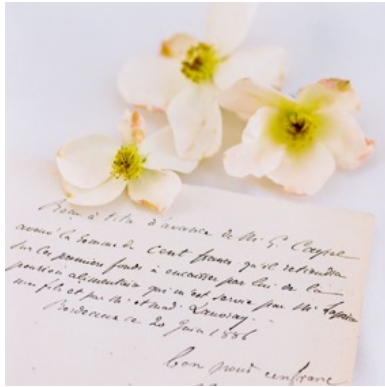 Reçu à titre d'avance de Mr G.
avoué la somme de Cent francs qu'il retiendra
sur les premiers fonds à encaisser par lui de la
pension alimentaire qui m'est servie par Mr
mon fils et par Mr et mad. Launay
Bordeaux ce 20 Juin 1886
bon pour cent francs